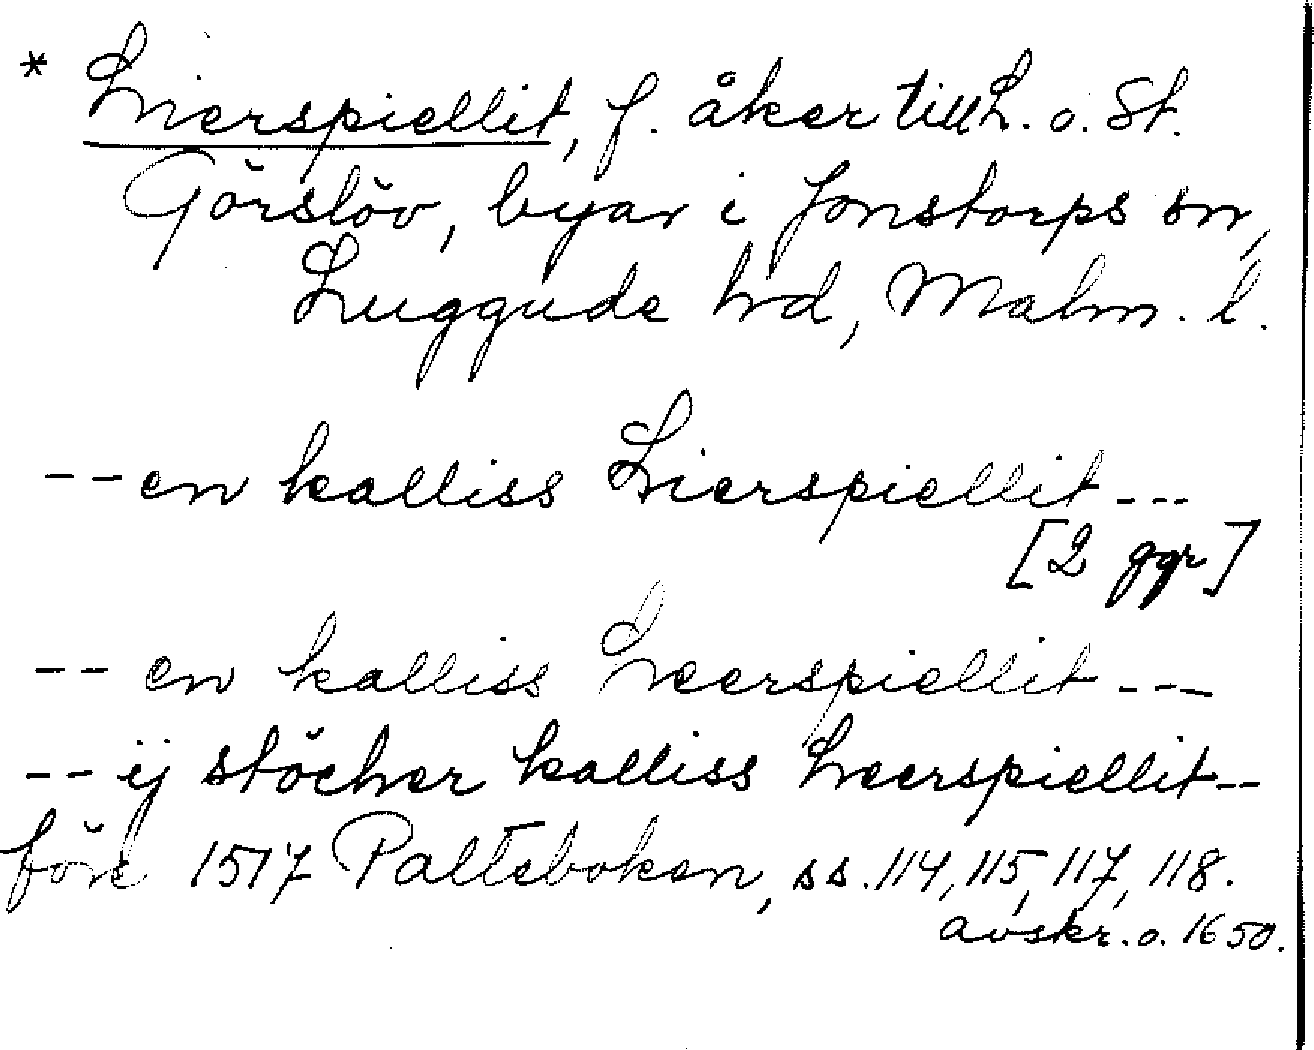 * Hierspiellit, f. åker till L. o. St.
Görslöv, byar i Jonstorps sn,
Luggude hrd, Malm. l.
-- en kalliss Hierspiellit ---
[2 ggr]
-- en kalliss Heerspiellit ---
-- ij stöcher kalliss Heerspiellit --
före 1517 Palteboken, ss. 114, 115, 117, 118.
avskr. o. 1650.